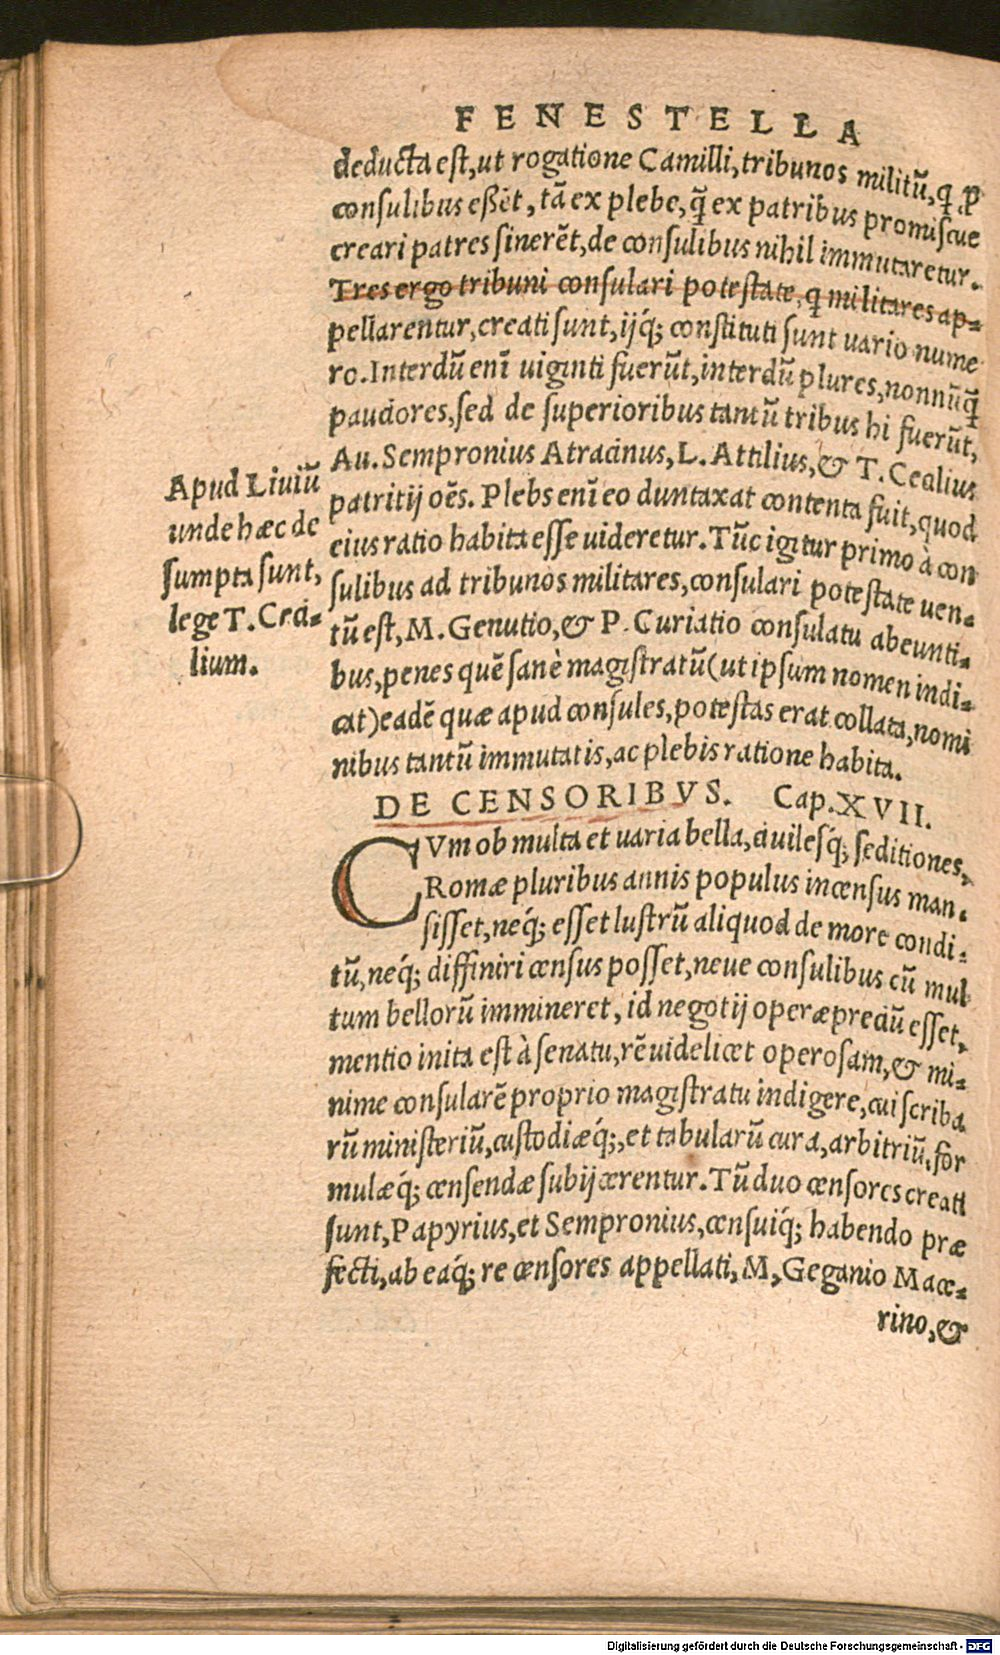 FENESTELLA
deducta est, ut rogatione Camilli, tribunos militũ, q̃ p̱
consulibus eßẽt, tã ex plebe, q̃ ex patribus promiscue
creari patres sinerẽt, de consulibus nihil immutaretur.
Tres ergo tribuni consulari potestate, q̃ militares ap-
pellarentur, creati sunt, ijq́; constituti sunt uario nume
ro. Interdũ enĩ uiginti fuerũt, interdũ plures, nonnũq̃
pauciores, sed de superioribus tantũ tribus hi fuerũt,
Au. Sempronius Atracinus, L. Attilius, & T. Cecilius
patritij oẽs. Plebs enĩ eo duntaxat contenta fuit, quod
eius ratio habita esse uideretur. Tũc igitur primo à con
sulibus ad tribunos militares, consulari potestate uen-
tũ est, M. Genutio, & P. Curiatio consulatu abeunti-
bus, penes quẽ sanè magistratũ (ut ipsum nomen indi-
cat) eadẽ quæ apud consules, potestas erat collata, nomi
nibus tantũ immutatis, ac plebis ratione habita.
Apud Liuiũ
unde hæc de
sumpta sunt,
lege T. Ceci-
lium.
DE CENSORIBVS. Cap. XVII.
CVm ob multa et uaria bella, ciuilesq́; seditiones,
Romæ pluribus annis populus incensus man-
sisset, neq́; esset lustrũ aliquod de more condi-
tũ, neq́; diffiniri census posset, neue consulibus cũ mul
tum bellorũ immineret, id negotij operæpreciũ esset,
mentio inita est à senatu, rẽ uidelicet operosam, & mi-
nime consularẽ proprio magistratu indigere, cui scriba
rũ ministeriũ, custodiæq́;, et tabularũ cura, arbitriũ, for
mulæq́; censendæ subijcerentur. Tũ duo censores creati
sunt, Papyrius, et Sempronius, censuiq́; habendo præ
fecti, ab eaq́; re censores appellati, M, Geganio Mace-
rino, &
Digitalisierung gefördert durch die Deutsche Forschungsgemeinschaft - DFG